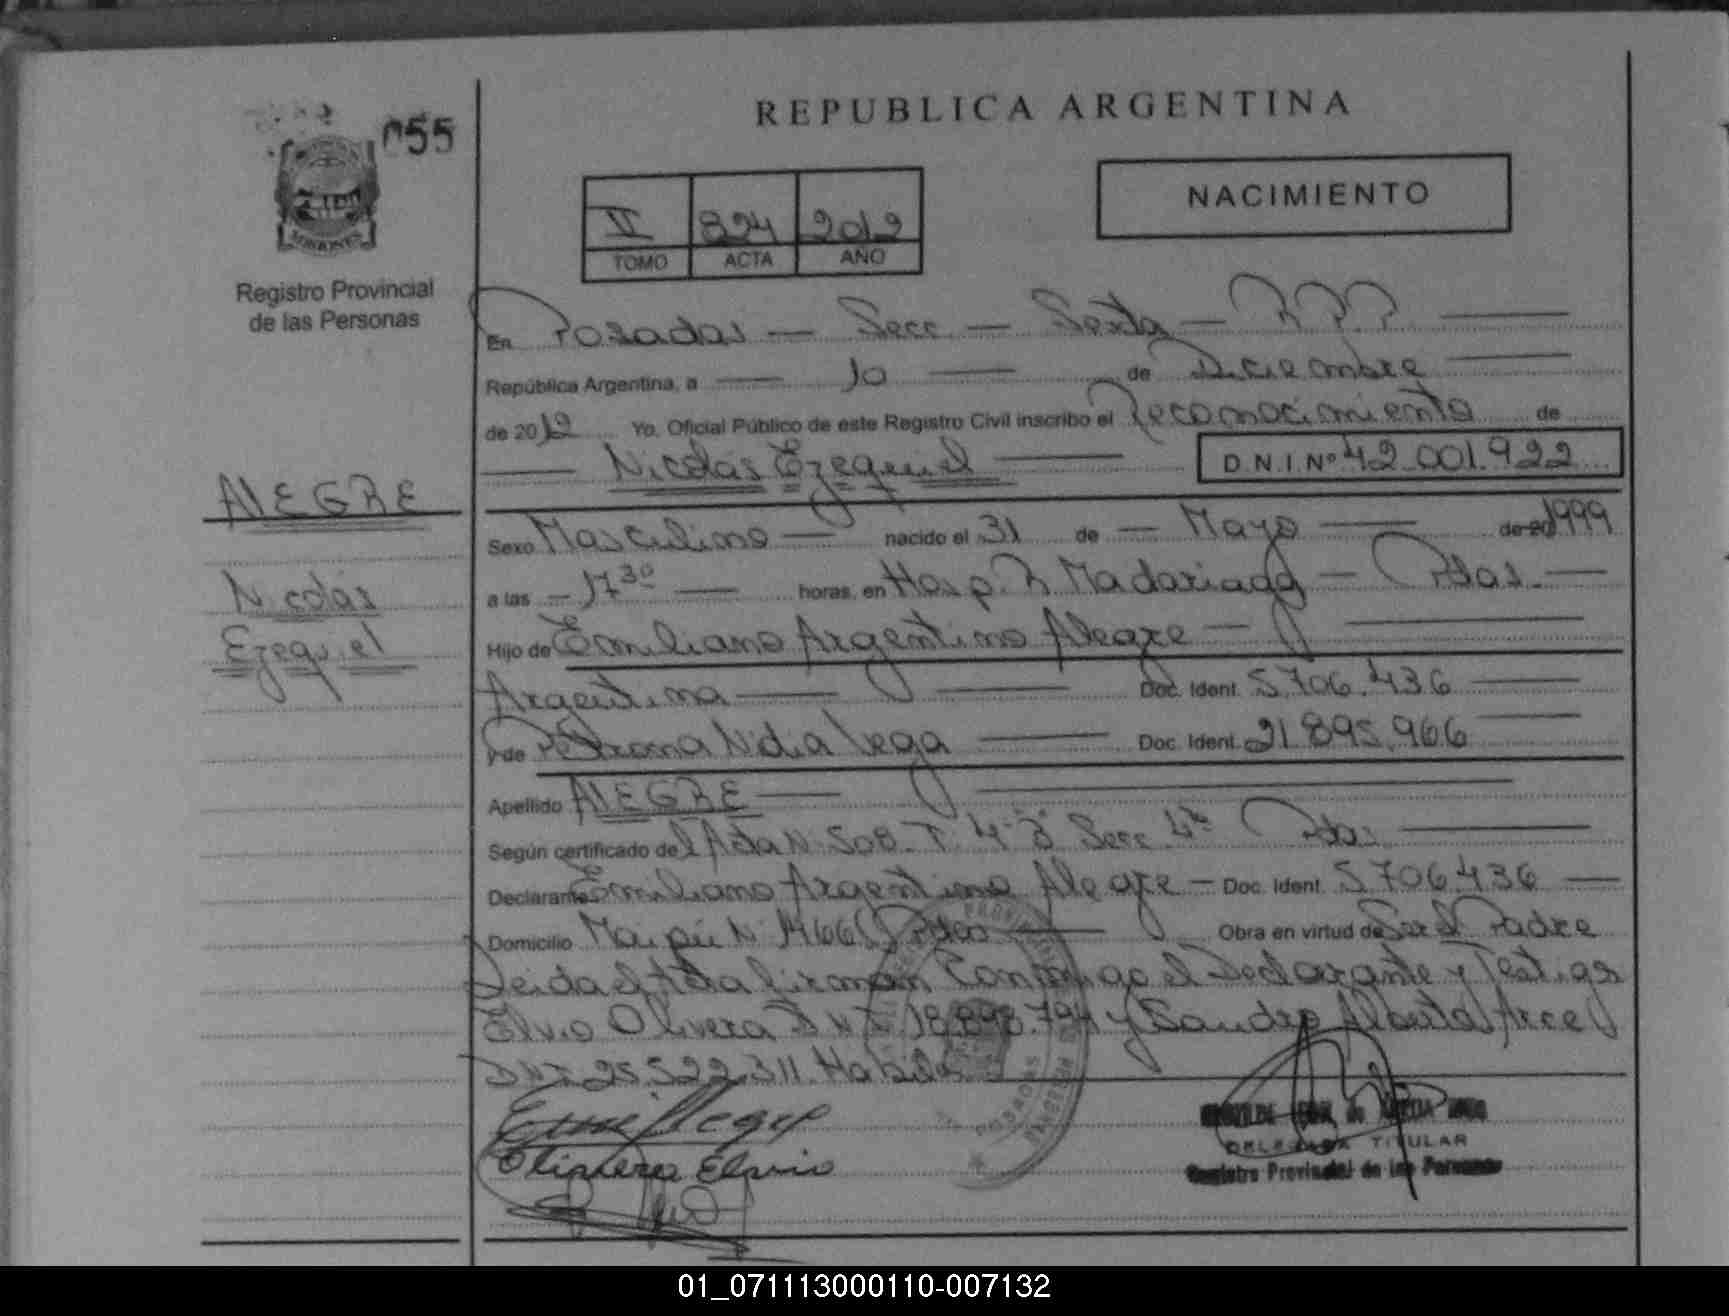 055
REPUBLICA ARGENTINA
NACIMIENTO
II 824 2012
TOMO ACTA AÑO
MISIONES
Registro Provincial
de las Personas
En Posadas — Secc — Sexta — R.P.P.
República Argentina, a — 10 — de Diciembre
de 2012 Yo. Oficial Público de este Registro Civil inscribo el Reconocimiento de
— Nicolás Ezequiel — D.N.I.Nº 42.001.922
ALEGRE
Nicolás
Ezequiel
Sexo Masculino — nacido el 31 de — Mayo — de 20 1999
a las — 17 30 — horas, en Hosp. R Madariaga — Pdas. —
Hijo de Emiliano Argentino Alegre —
Argentina — Doc. Ident. 5.706.436 —
y de Petrona Nidia Vega — Doc. Ident. 21.895.966
Apellido ALEGRE —
Según certificado del Acta N 508 T. 4 Secc. 4ta Pdas. —
Declarante Emiliano Argentino Alegre — Doc. Ident. 5.706.436 —
Domicilio Maipú N 1466 Pdas — Obra en virtud de Ser el Padre
Leida el Acta firman Conmigo el Declarante y Testigos
Elvio Olivera D N I. 18.898.794 y Sandro Alberto Arce
DNI. 25.522.311. Habiles
Olivera Elvio
DELEGADA TITULAR
Registro Provincial de las Personas
POSADAS
01_071113000110-007132